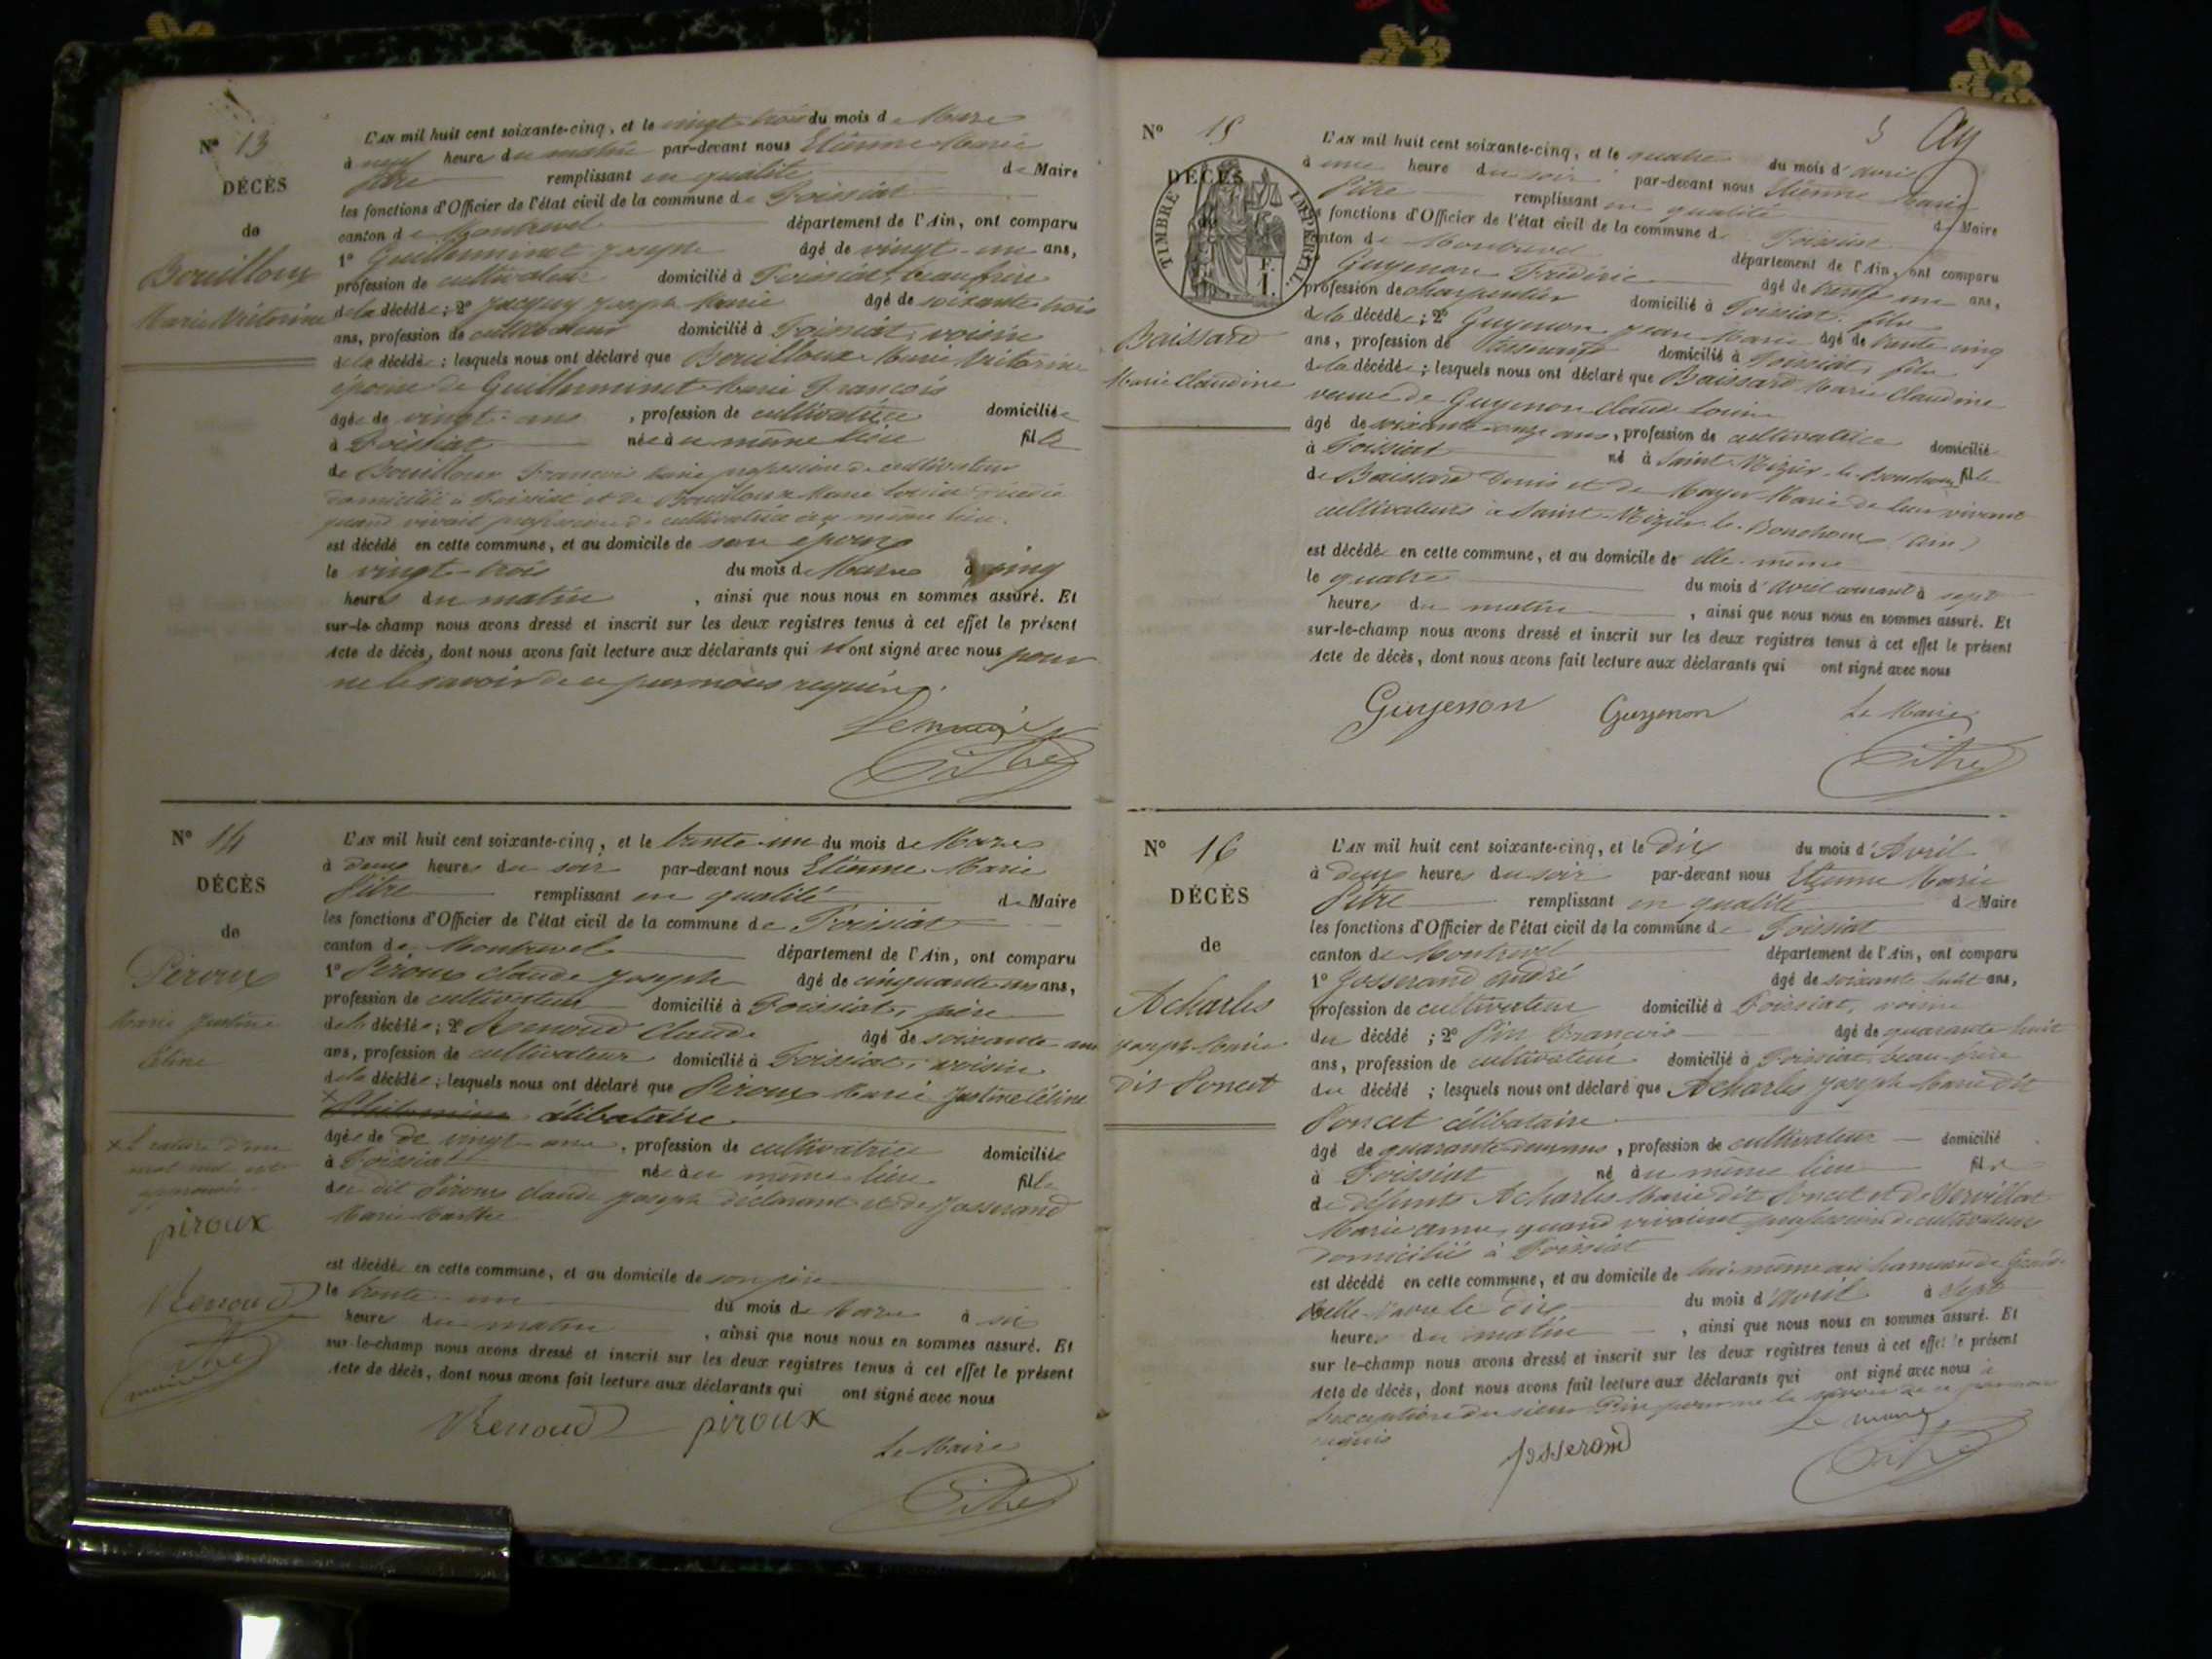 N° 13
DÉCÈS
de
Bouilloux
Marie Victorine
L'AN mil huit cent soixante-cinq, et le vingt-trois du mois de Mars
à neuf heures du matin par-devant nous Etienne Marie
Pitre remplissant en qualité de Maire
les fonctions d'Officier de l'état civil de la commune de Foissiat
canton de Montrevel département de l'Ain, ont comparu
1° Guilleminet Joseph âgé de vingt-un ans,
profession de cultivateur domicilié à Foissiat, beau frère
de la décédée ; 2° Jacquy Joseph Marie âgé de soixante trois
ans, profession de cultivateur domicilié à Foissiat, voisin
de la décédée ; lesquels nous ont déclaré que Bouilloux Marie Victorine
épouse de Guilleminet Marie François
âgée de vingt ans , profession de cultivatrice domiciliée
à Foissiat née à u même lieu fille
de Bouilloux François Marie profession de cultivateur
domicilié à Foissiat et de Bouilloux Marie Louise
quand vivait profession de cultivatrice au même lieu.
est décédé en cette commune, et au domicile de son époux
le vingt-trois du mois de Mars à cinq
heures du matin , ainsi que nous nous en sommes assuré. Et
sur-le-champ nous avons dressé et inscrit sur les deux registres tenus à cet effet le présent
Acte de décès, dont nous avons fait lecture aux déclarants qui n'ont signé avec nous pour
ne le savoir de ce par nous requis.
Le maire
Pitre
N° 14
DÉCÈS
de
Piroux
Marie Justine
Céline
x La rature d'un
mot nul est
approuvée
piroux
Renoud
Pitre
maire
L'AN mil huit cent soixante-cinq, et le trente-un du mois de Mars
à deux heures du soir par-devant nous Etienne Marie
Pitre remplissant en qualité de Maire
les fonctions d'Officier de l'état civil de la commune de Foissiat
canton de Montrevel département de l'Ain, ont comparu
1° Piroux Claude Joseph âgé de cinquante ans,
profession de cultivateur domicilié à Foissiat, père
de la décédée ; 2° Renoud Claude âgé de soixante
ans, profession de cultivateur domicilié à Foissiat, voisin
de la décédée ; lesquels nous ont déclaré que Piroux Marie Justine Céline
x Philomène célibataire
âgée de de vingt ans , profession de cultivatrice domiciliée
à Foissiat née à u même lieu fille
de dit Piroux Claude Joseph déclarant et de Josserand
Marie Marthe
est décédée en cette commune, et au domicile de son père
le trente-un du mois de Mars à six
heure du matin , ainsi que nous nous en sommes assuré. Et
sur-le-champ nous avons dressé et inscrit sur les deux registres tenus à cet effet le présent
Acte de décès, dont nous avons fait lecture aux déclarants qui ont signé avec nous
Renoud piroux
Le Maire
Pitre
5
N° 15
DÉCÈS
de
TIMBRE IMPÉRIAL
F.
1.
Baissard
Marie Claudine
L'AN mil huit cent soixante-cinq, et le quatre du mois d'avril
à une heure du soir par-devant nous Etienne Marie
Pitre remplissant en qualité de Maire
les fonctions d'Officier de l'état civil de la commune de Foissiat
canton de Montrevel département de l'Ain, ont comparu
Guyenon Frédéric âgé de trente un ans,
profession de charpentier domicilié à Foissiat, fils
de la décédée ; 2° Guyenon Jean Marie âgé de trente cinq
ans, profession de domicilié à Foissiat, fils
de la décédée ; lesquels nous ont déclaré que Baissard Marie Claudine
veuve de Guyenon Claude Louis
âgé de soixante-onze ans, profession de cultivatrice domicilié
à Foissiat né à Saint-Nizier-le-Bouchoux fille
de Baissard Denis et de Mayer Marie de leur vivant
cultivateurs à Saint-Nizier-le-Bouchoux (ain)
est décédée en cette commune, et au domicile de elle-même
le quatre du mois d'avril courant à sept
heures du matin , ainsi que nous nous en sommes assuré. Et
sur-le-champ nous avons dressé et inscrit sur les deux registres tenus à cet effet le présent
Acte de décès, dont nous avons fait lecture aux déclarants qui ont signé avec nous
Guyenon Guyenon Le Maire
Pitre
N° 16
DÉCÈS
de
Acharles
Joseph Marie
dit Poncet
L'AN mil huit cent soixante-cinq, et le dix du mois d'Avril
à deux heures du soir par-devant nous Etienne Marie
Pitre remplissant en qualité de Maire
les fonctions d'Officier de l'état civil de la commune de Foissiat
canton de Montrevel département de l'Ain, ont comparu
1° Josserand André âgé de soixante huit ans,
profession de cultivateur domicilié à Foissiat, voisin
du décédé ; 2° Pin François âgé de quarante huit
ans, profession de cultivateur domicilié à Foissiat, beau-frère
du décédé ; lesquels nous ont déclaré que Acharles Joseph Marie dit
Poncet célibataire
âgé de quarante-deux ans, profession de cultivateur domicilié
à Foissiat né à u même lieu fils
de défunts Acharles Marie dit Poncet et de Vervillat
Marie anne, quand vivaient profession de cultivateurs
domiciliés à Foissiat
est décédé en cette commune, et au domicile de lui-même au hameau de
le dix du mois d'avril à sept
heures du matin , ainsi que nous nous en sommes assuré. Et
sur le-champ nous avons dressé et inscrit sur les deux registres tenus à cet effet le présent
Acte de décès, dont nous avons fait lecture aux déclarants qui ont signé avec nous à
l'exception du sieur Pin pour ne le savoir de ce par nous
requis
Le maire
Josserand
Pitre